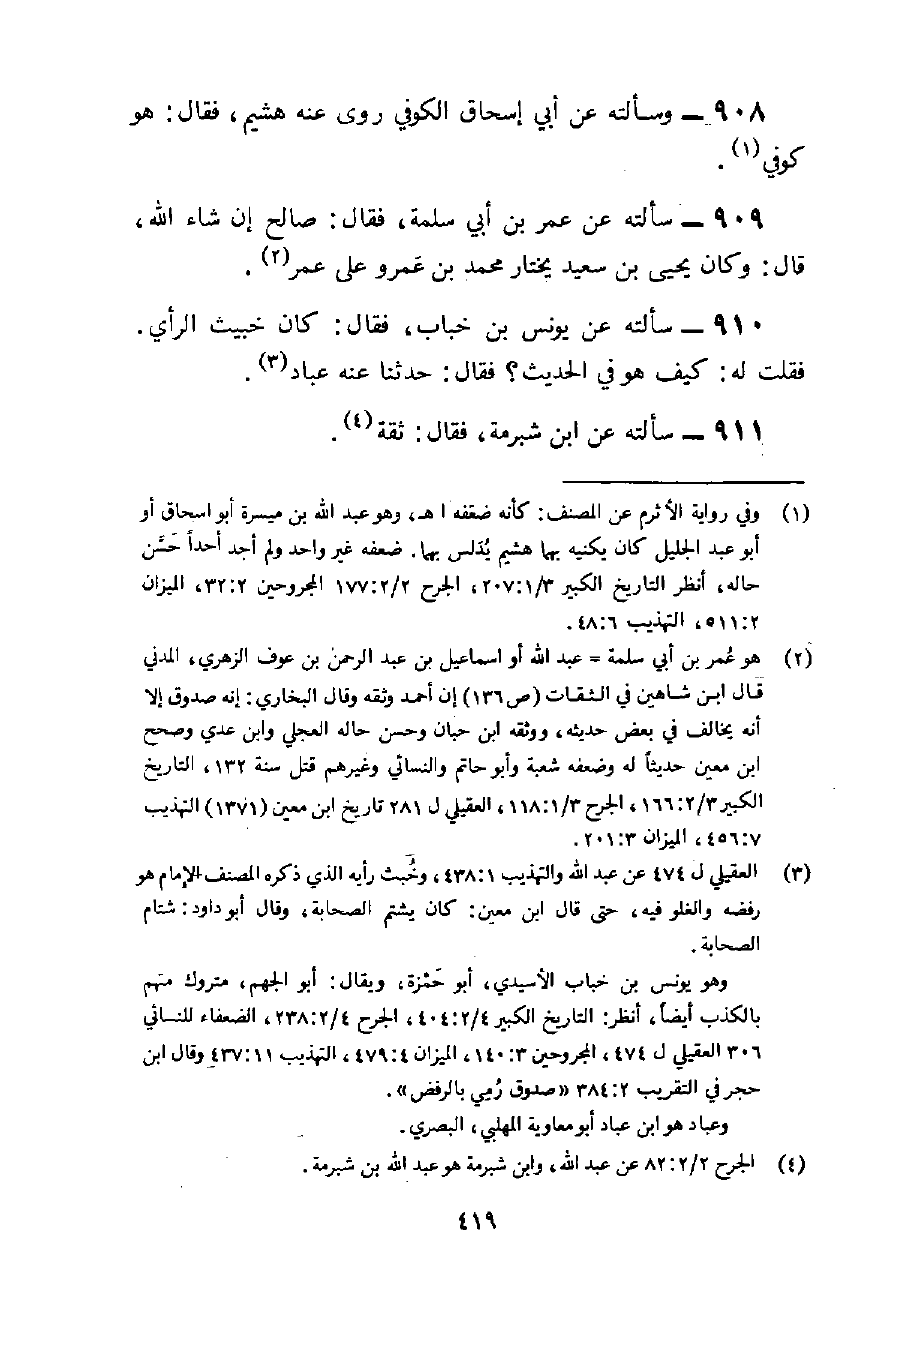 ٩٠٨ ــ وسألته عن أبي إسحاق الكوفي روى عنه هشيم، فقال: هو
كوفي(١).
٩٠٩ ــ سألته عن عمر بن أبي سلمة، فقال: صالح إن شاء الله،
قال: وكان يحيى بن سعيد يختار محمد بن عَمرو على عمر(٢).
٩١٠ ــ سألته عن يونس بن خباب، فقال: كان خبيث الرأي.
فقلت له: كيف هو في الحديث؟ فقال: حدثنا عنه عباد(٣).
٩١١ ــ سألته عن ابن شبرمة، فقال: ثقة(٤).
(١) وفي رواية الأثرم عن المصنف: كأنه ضعفه ا هـ، وهو عبد الله بن ميسرة أبو اسحاق أو
أبو عبد الجليل كان يكنيه بها هشيم يُدَلس بها. ضعفه غير واحد ولم أجد أحداً حَسَّن
حاله، أنظر التاريخ الكبير ٢٠٧:١/٣، الجرح ١٧٧:٢/٢ المجروحين ٣٢:٢، الميزان
٥١١:٢، التهذيب ٤٨:٦.
(٢) هو عُمر بن أبي سلمة = عبد الله أو اسماعيل بن عبد الرحمن بن عوف الزهري، المدني
قال ابن شاهين في الثقات (ص ١٣٦) إن أحمد وثقه وقال البخاري: إنه صدوق إلا
أنه يخالف في بعض حديثه، ووثقه ابن حبان وحسن حاله العجلي وابن عدي وصحح
ابن معين حديثاً له وضعفه شعبة وأبو حاتم والنسائي وغيرهم قتل سنة ١٣٢، التاريخ
الكبير ١٦٦:٢/٣، الجرح ١١٨:١/٣، العقيلي ل ٢٨١ تاريخ ابن معين (١٣٧١) التهذيب
٤٥٦:٧، الميزان ٢٠١:٣.
(٣) العقيلي ل ٤٧٤ عن عبد الله والتهذيب ٤٣٨:١، وخُبث رأيه الذي ذكره المصنف الإمام هو
رفضه والغلو فيه، حتى قال ابن معين: كان يشتم الصحابة، وقال أبو داود: شتام
الصحابة.
وهو يونس بن خباب الأسيدي، أبو حَمْزة، ويقال: أبو الجهم، متروك متهم
بالكذب أيضاً، أنظر: التاريخ الكبير ٤٠٤:٢/٤، الجرح ٢٣٨:٢/٤، الضعفاء للنسائي
٣٠٦ العقيلي ل ٤٧٤، المجروحين ١٤٠:٣، الميزان ٤٧٩:٤، التهذيب ٤٣٧:١١ وقال ابن
حجر في التقريب ٣٨٤:٢ «صدوق رُمي بالرفض».
وعباد هو ابن عباد أبو معاوية المهلبي، البصري.
(٤) الجرح ٨٢:٢/٢ عن عبد الله، وابن شبرمة هو عبد الله بن شبرمة.
٤١٩